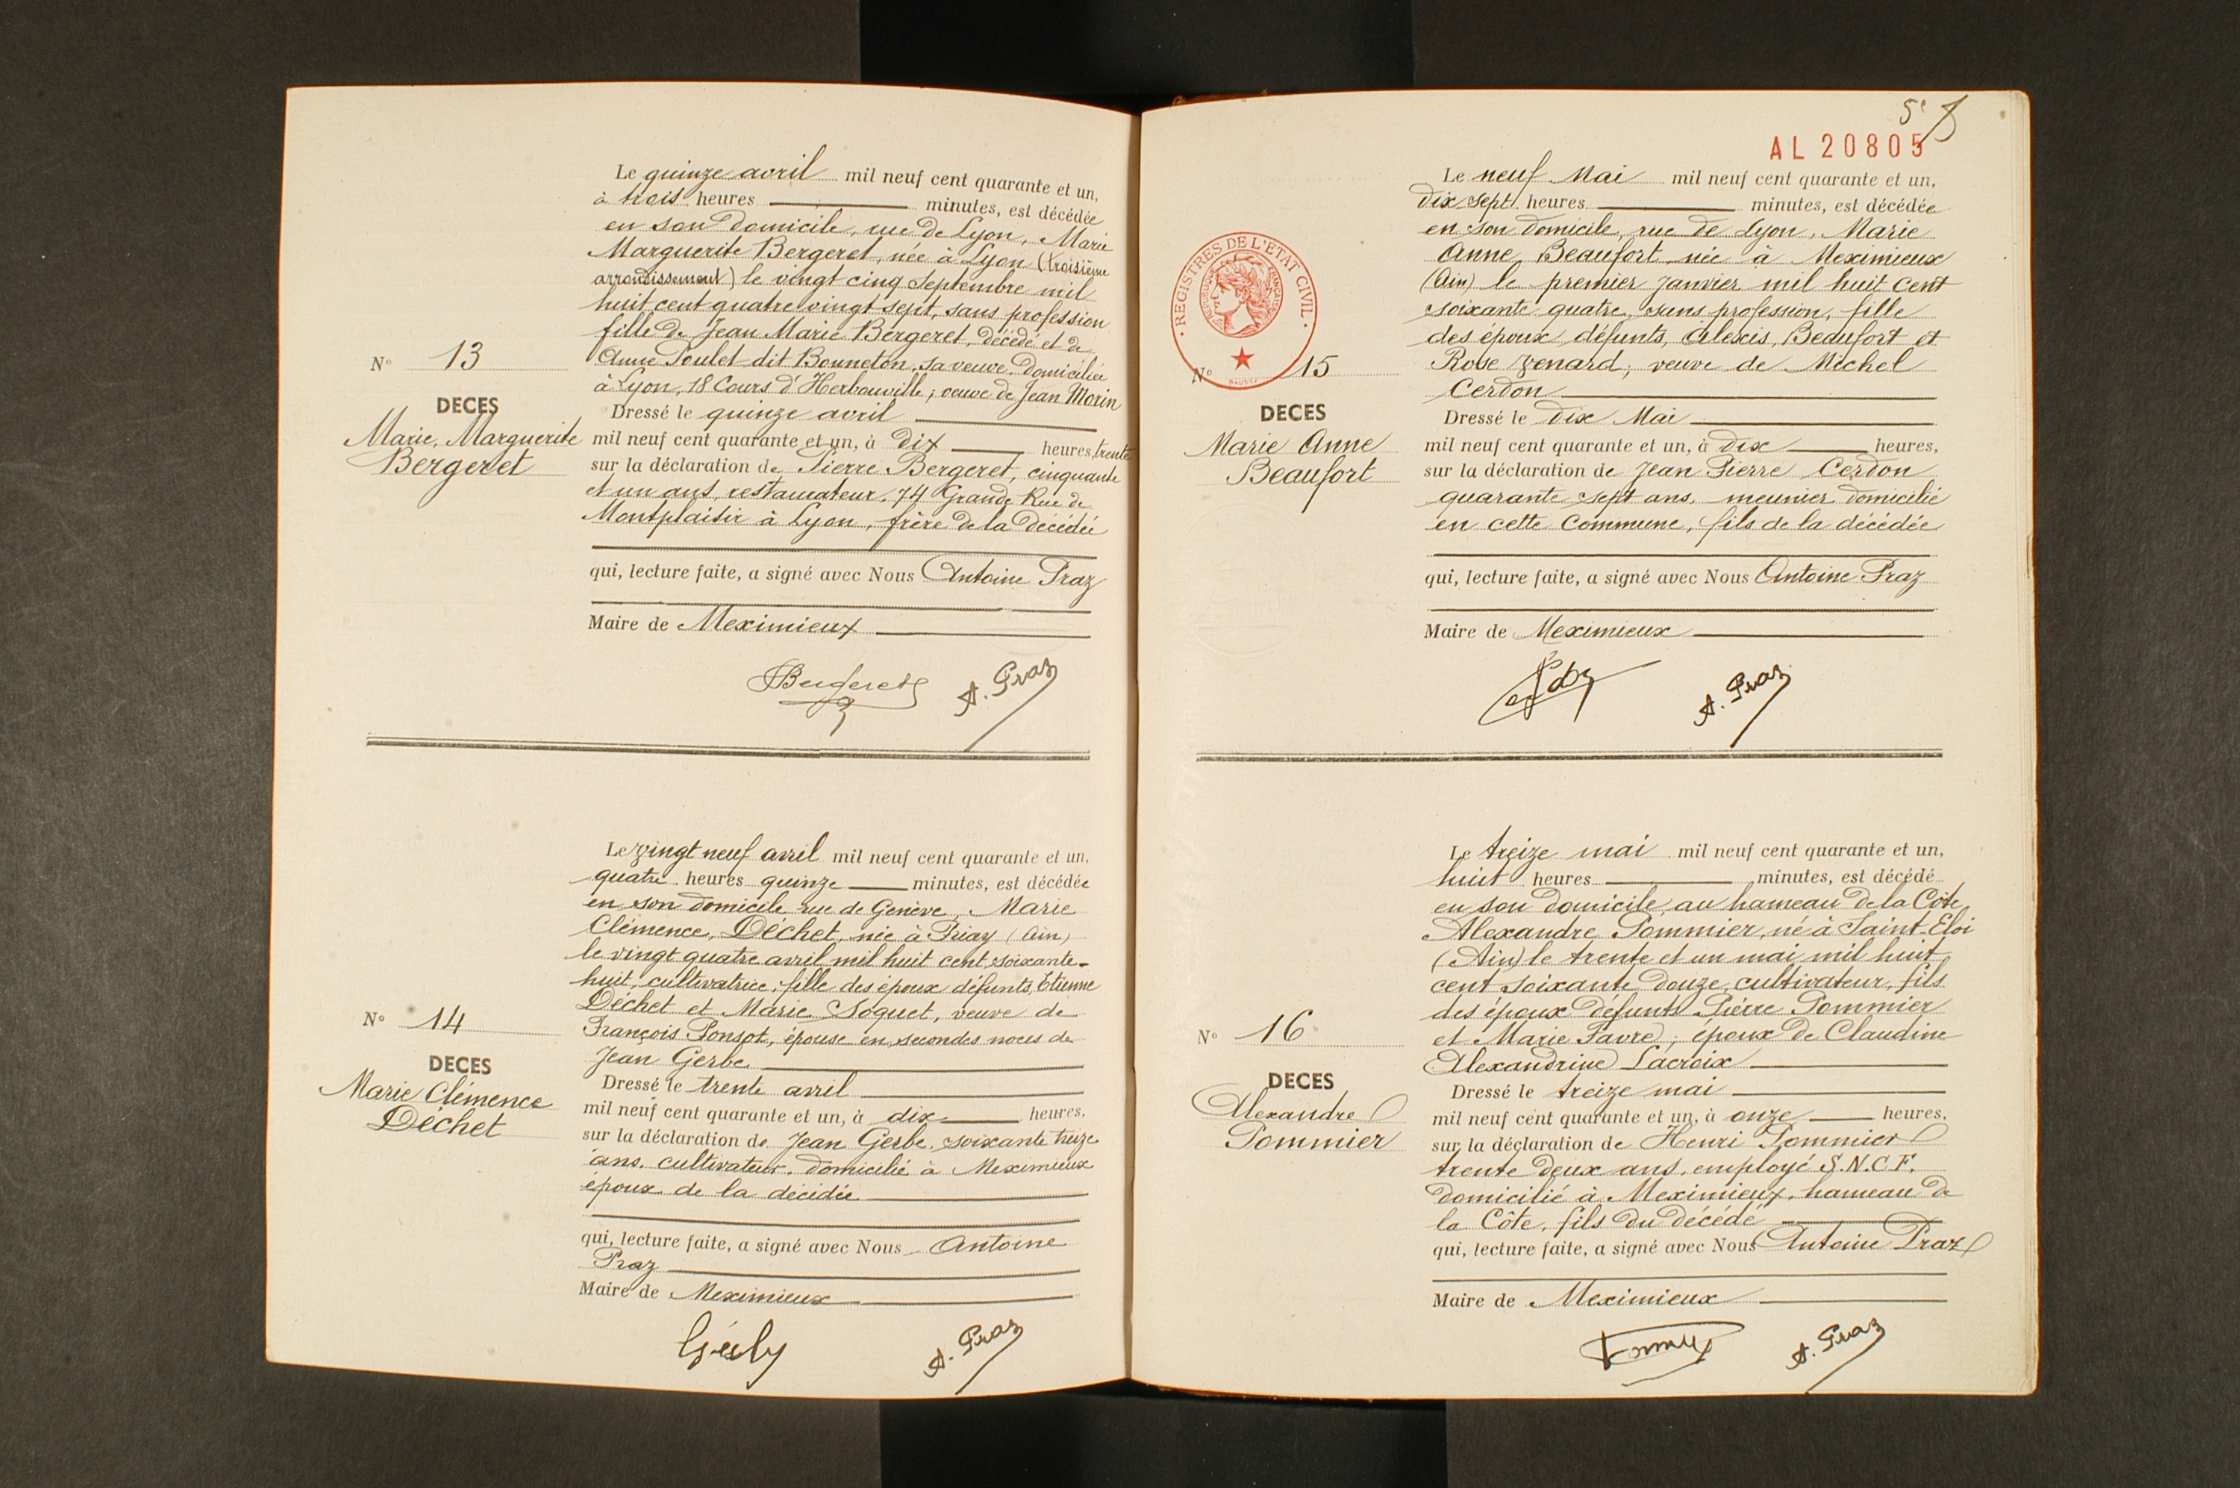 Le quinze avril mil neuf cent quarante et un,
à trois heures minutes, est décédée
en son domicile, rue de Lyon, Marie
Marguerite Bergeret, née à Lyon (troisième
arrondissement) le vingt cinq Septembre mil
huit cent quatre vingt sept, sans profession
fille de Jean Marie Bergeret, décédé et de
Anne Poulet dit Bonneton, sa veuve. Domiciliée
à Lyon, 18 Cours d'Herbouville; veuve de Jean Morin
N° 13
DECES
Marie, Marguerite
Bergeret
Dressé le quinze avril
mil neuf cent quarante et un, à dix heures, trente
sur la déclaration de Pierre Bergeret, cinquante
et un ans, restaurateur, 74 Grande Rue de
Montplaisir à Lyon, frère de la décédée
qui, lecture faite, a signé avec Nous Antoine Praz
Maire de Meximieux
Bergeret A. Praz
Le vingt neuf avril mil neuf cent quarante et un,
quatre heures quinze minutes, est décédée
en son domicile rue de Genève, Marie
Clémence, Déchet, née à Priay (Ain)
le vingt quatre avril mil huit cent soixante-
huit, cultivatrice, fille des époux défunts, Etienne
Déchet et Marie Soquet, veuve de
François Ponsot, épouse en secondes noces de
Jean Gerbe
N° 14
DECES
Marie Clémence
Déchet
Dressé le trente avril
mil neuf cent quarante et un, à dix heures,
sur la déclaration de Jean Gerbe, soixante treize
ans, cultivateur, domicilié à Meximieux
époux de la décédée
qui, lecture faite, a signé avec Nous Antoine
Praz
Maire de Meximieux
A. Praz
5e
AL 20805
Le neuf Mai mil neuf cent quarante et un,
dix sept heures minutes, est décédée
en son domicile, rue de Lyon, Marie
Anne, Beaufort, née à Meximieux
(Ain) le premier Janvier mil huit cent
soixante quatre, sans profession, fille
des époux défunts, Alexis, Beaufort et
Rose Venard; veuve de Michel
Cerdon
REGISTRES DE L'ETAT CIVIL
N° 15
DECES
Marie Anne
Beaufort
Dressé le dix Mai
mil neuf cent quarante et un, à dix heures,
sur la déclaration de Jean Pierre Cerdon
quarante sept ans, meunier domicilié
en cette Commune, fils de la décédée
qui, lecture faite, a signé avec Nous Antoine Praz
Maire de Meximieux
A. Praz
Le treize mai mil neuf cent quarante et un,
huit heures minutes, est décédé
en son domicile, au hameau de la Côte,
Alexandre Pommier, né à Saint-Eloi
(Ain) le trente et un mai mil huit
cent soixante douze, cultivateur, fils
des époux défunts Pierre Pommier
et Marie Favre, époux de Claudine
Alexandrine Lacroix
N° 16
DECES
Alexandre
Pommier
Dressé le treize mai
mil neuf cent quarante et un, à onze heures,
sur la déclaration de Henri Pommier
trente deux ans, employé S.N.C.F.
domicilié à Meximieux, hameau de
la Côte, fils du décédé
qui, lecture faite, a signé avec Nous Antoine Praz
Maire de Meximieux
A. Praz